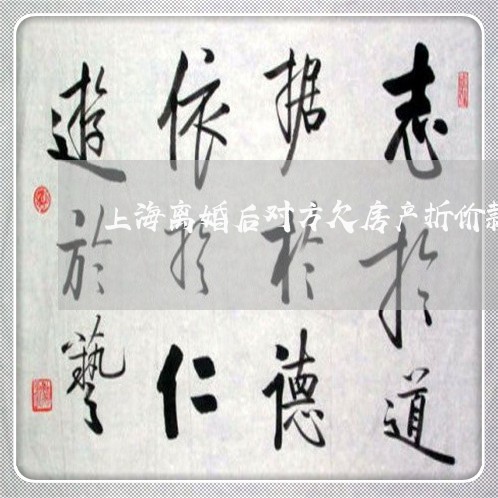 志於道
据於德
依於仁
遊於藝
上海离婚后对方欠房产折价款